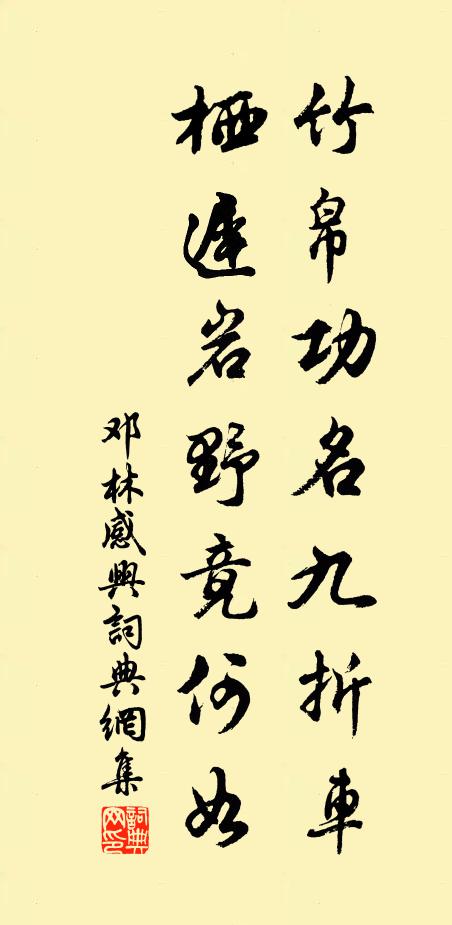 竹帛功名九折車
栖遲岩野竟何如
邓林感興詞典網集
詞典网印